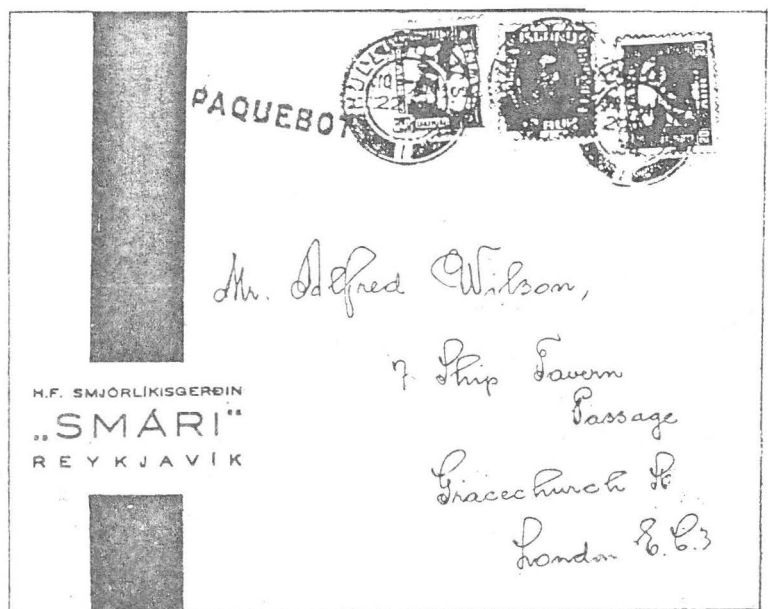 PAQUEBOT
HULL
Mr. Alfred Wilson,
7. Ship Tavern
Passage
Gracechurch St
London E.C.3
H.F. SMJÖRLÍKISGERÐIN
„SMÁRI“
REYKJAVÍK